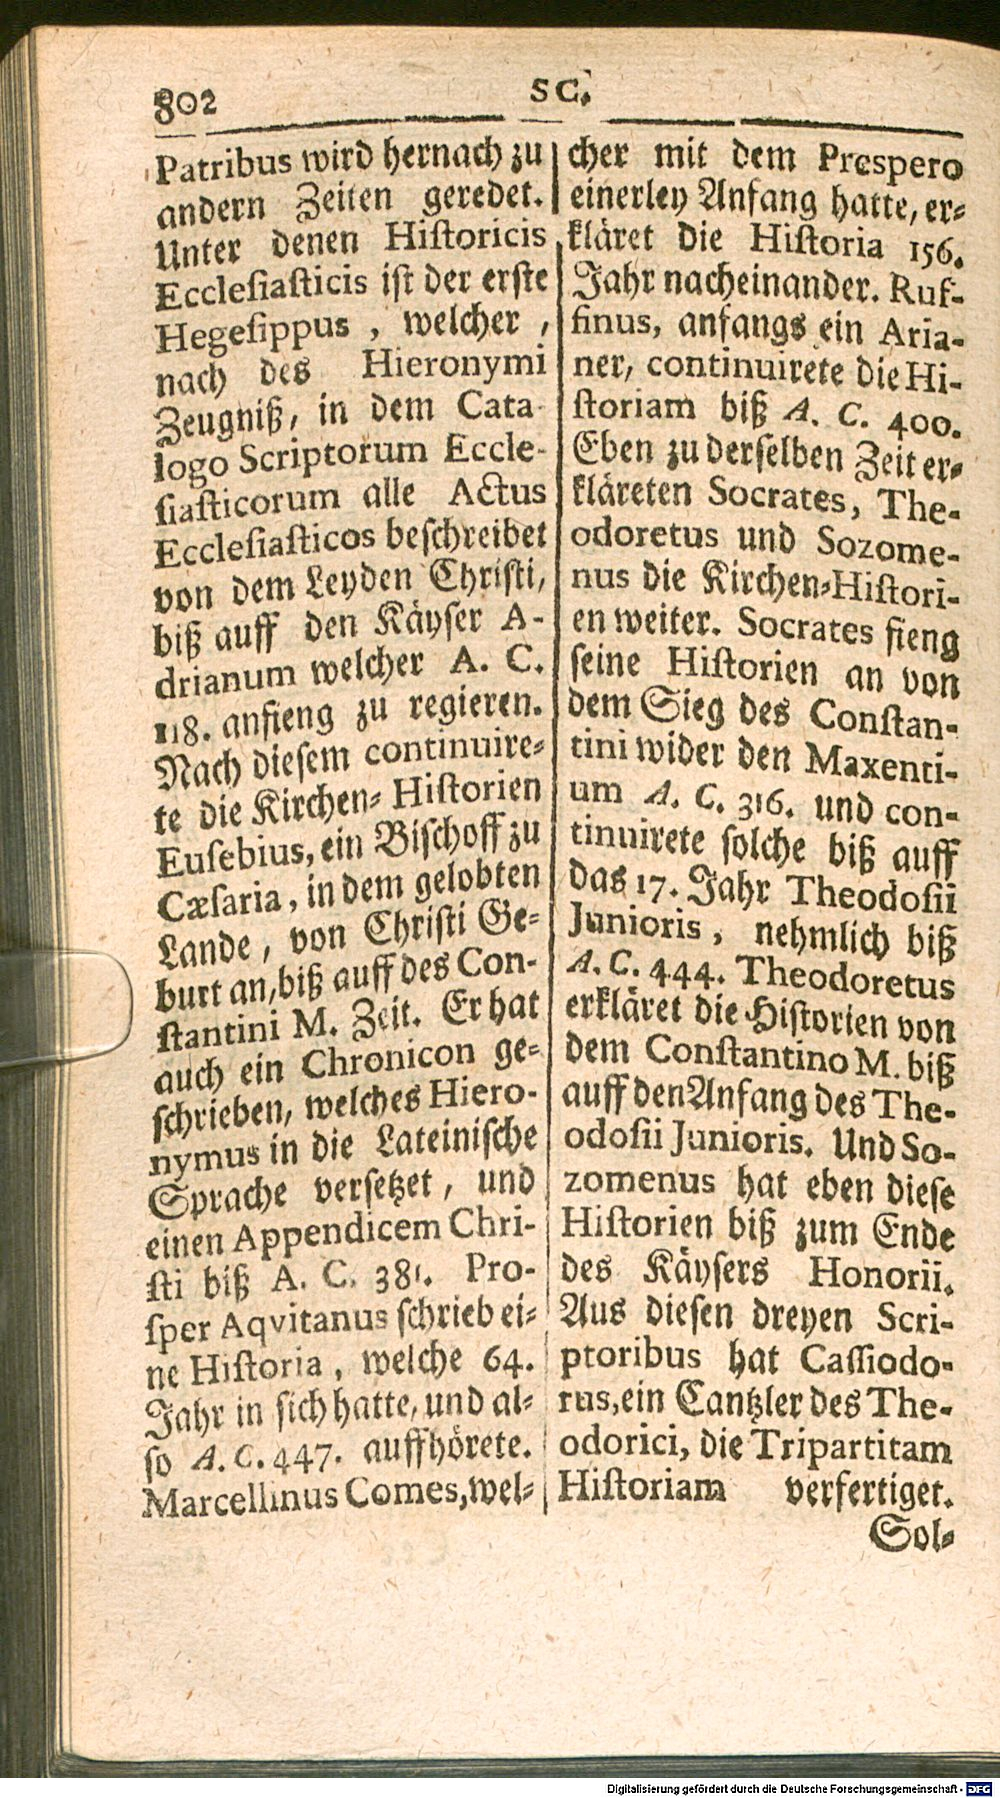 802
SC.
Patribus wird hernach zu
andern Zeiten geredet.
Unter denen Historicis
Ecclesiasticis ist der erste
Hegesippus , welcher ,
nach des Hieronymi
Zeugniß, in dem Cata-
logo Scriptorum Eccle-
siasticorum alle Actus
Ecclesiasticos beschreibet
von dem Leyden Christi,
biß auff den Käyser A-
drianum welcher A. C.
118. anfieng zu regieren.
Nach diesem continuire-
te die Kirchen-Historien
Eusebius, ein Bischoff zu
Cæsaria, in dem gelobten
Lande, von Christi Ge-
burt an, biß auff des Con-
stantini M. Zeit. Er hat
auch ein Chronicon ge-
schrieben, welches Hiero-
nymus in die Lateinische
Sprache versetzet, und
einen Appendicem Chri-
sti biß A. C. 381. Pro-
sper Aqvitanus schrieb ei-
ne Historia, welche 64.
Jahr in sich hatte, und al-
so A. C. 447. auffhörete.
Marcellinus Comes, wel-
cher mit dem Prespero
einerley Anfang hatte, er-
kläret die Historia 156.
Jahr nacheinander. Ruf-
finus, anfangs ein Aria-
ner, continuirete die Hi-
storiam biß A. C. 400.
Eben zu derselben Zeit er-
kläreten Socrates, The-
odoretus und Sozome-
nus die Kirchen-Histori-
en weiter. Socrates fieng
seine Historien an von
dem Sieg des Constan-
tini wider den Maxenti-
um A. C. 316. und con-
tinuirete solche biß auff
das 17. Jahr Theodosii
Junioris, nehmlich biß
A. C. 444. Theodoretus
erkläret die Historien von
dem Constantino M. biß
auff den Anfang des The-
odosii Junioris. Und So-
zomenus hat eben diese
Historien biß zum Ende
des Käysers Honorii.
Aus diesen dreyen Scri-
ptoribus hat Cassiodo-
rus, ein Cantzler des The-
odorici, die Tripartitam
Historiam verfertiget.
Sol-
Digitalisierung gefördert durch die Deutsche Forschungsgemeinschaft - DFG